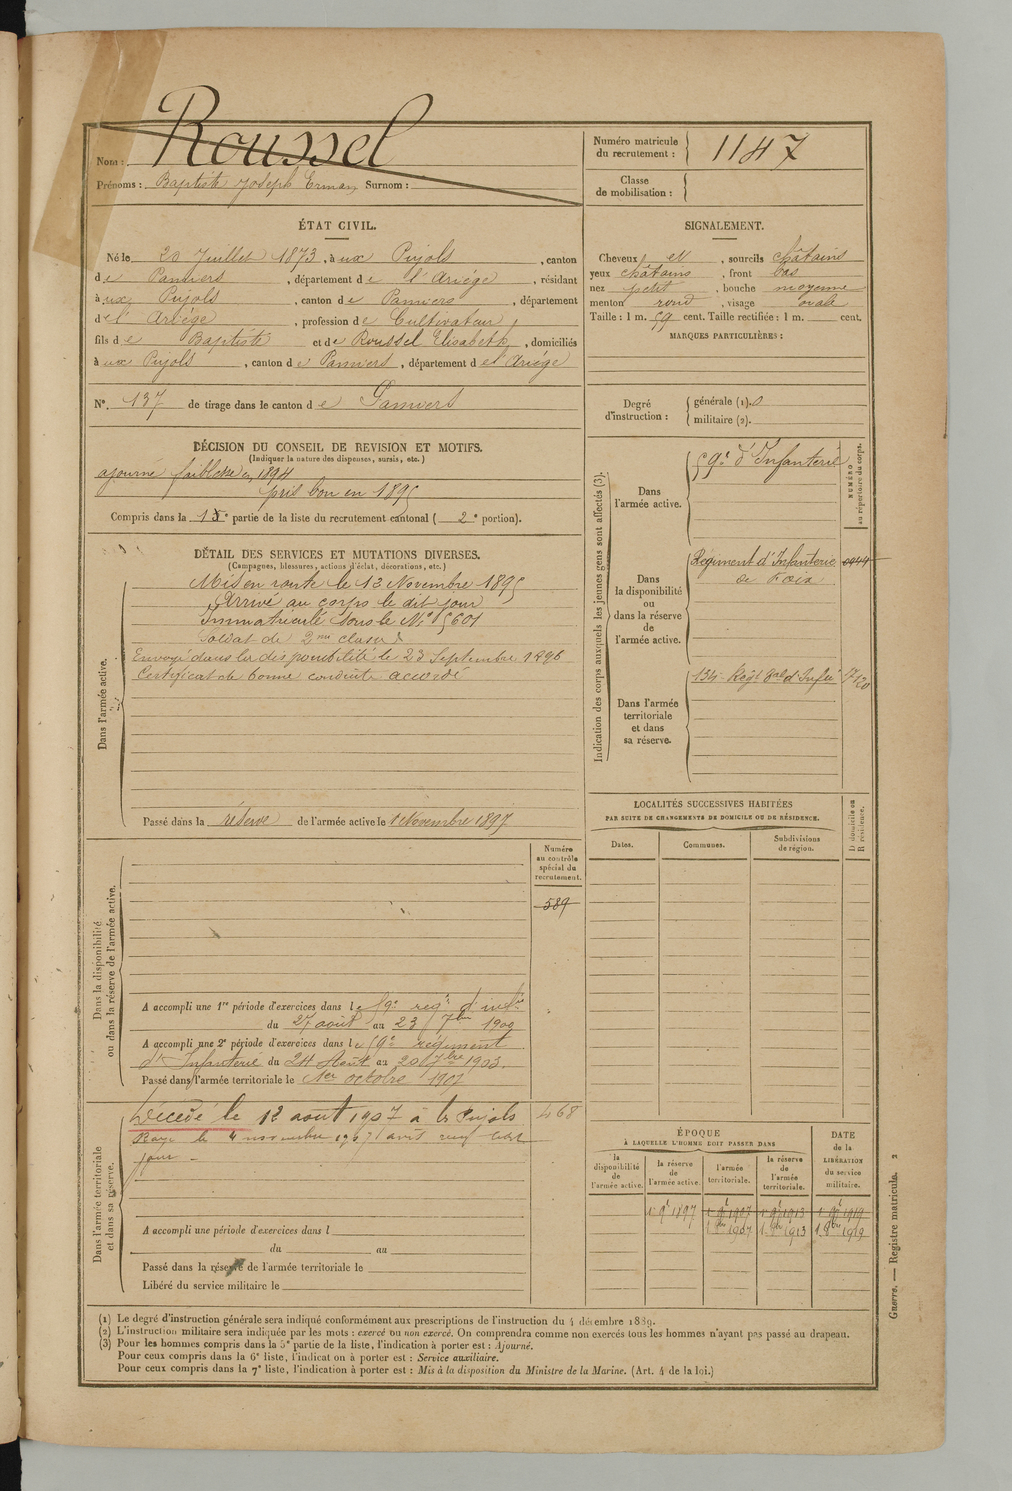 Nom : Roussel
Prénoms : Baptiste Joseph Surnom :
Numéro matricule du recrutement : 1147
Classe de mobilisation :
ÉTAT CIVIL.
Né le 20 Juillet 1873, à ux Pujols, canton
de Pamiers, département de l'Ariége, résidant
à ux Pujols, canton de Pamiers, département
de l'Ariége, profession de Cultivateur
fils de Baptiste et de Roussel Elisabeth, domiciliés
à ux Pujols, canton de Pamiers, département de l'Ariége
N°. 137 de tirage dans le canton de Pamiers
SIGNALEMENT.
Cheveux et, sourcils châtains
yeux châtains, front bas
nez petit, bouche moyenne
menton rond, visage ovale
Taille : 1 m. 59 cent. Taille rectifiée : 1 m. cent.
MARQUES PARTICULIÈRES :
Degré d'instruction :
générale (1). 0
militaire (2).
DÉCISION DU CONSEIL DE REVISION ET MOTIFS.
(Indiquer la nature des dispenses, sursis, etc.)
ajourné en 1894
pris bon en 1895
Compris dans la partie de la liste du recrutement cantonal ( 2e portion).
DÉTAIL DES SERVICES ET MUTATIONS DIVERSES.
(Campagnes, blessures, actions d'éclat, décorations, etc.)
Dans l'armée active.
Mis en route le 13 Novembre 1895
Arrivé au corps le dit jour
Immatriculé sous le N° 5601
Soldat de 2me classe
Envoyé dans la disponibilité le 23 Septembre 1896
Certificat de bonne conduite accordé
Passé dans la réserve de l'armée active le 1 Novembre 1897
Indication des corps auxquels les jeunes gens sont affectés (3).
NUMÉRO au répertoire du corps.
Dans l'armée active.
59e d'Infanterie
Dans la disponibilité ou dans la réserve de l'armée active.
Régiment d'Infanterie
de Foix
0944
Dans l'armée territoriale et dans sa réserve.
134e Régt
LOCALITÉS SUCCESSIVES HABITÉES
PAR SUITE DE CHANGEMENTS DE DOMICILE OU DE RÉSIDENCE.
Dates.
Communes.
Subdivisions de région.
D domicile ou R résidence.
Dans la disponibilité ou dans la réserve de l'armée active.
Numéro au contrôle spécial du recrutement.
589
A accompli une 1re période d'exercices dans le 59e régt d'infie
du 27 août au 23 7bre 1900
A accompli une 2e période d'exercices dans le 59e régiment
d'Infanterie du 24 Août au 20 7bre 1903.
Passé dans l'armée territoriale le 1er octobre 1907
Dans l'armée territoriale et dans sa réserve.
Décédé le 12 aout 1907 à les Pujols
468
Rayé le 4 novembre 1907
jour
A accompli une période d'exercices dans l
du au
Passé dans la réserve de l'armée territoriale le
Libéré du service militaire le
ÉPOQUE
À LAQUELLE L'HOMME DOIT PASSER DANS
DATE de la LIBÉRATION du service militaire.
la disponibilité de l'armée active.
la réserve de l'armée active.
l'armée territoriale.
la réserve de l'armée territoriale.
1 9bre 1897 1 9bre 1907 1 9bre 1913 1 9bre 1919
1 8bre 1907 1 8bre 1913 1 8bre 1919
(1) Le degré d'instruction générale sera indiqué conformément aux prescriptions de l'instruction du 4 décembre 1889.
(2) L'instruction militaire sera indiquée par les mots : exercé ou non exercé. On comprendra comme non exercés tous les hommes n'ayant pas passé au drapeau.
(3) Pour les hommes compris dans la 5e partie de la liste, l'indication à porter est : Ajourné.
Pour ceux compris dans la 6e liste, l'indication à porter est : Service auxiliaire.
Pour ceux compris dans la 7e liste, l'indication à porter est : Mis à la disposition du Ministre de la Marine. (Art. 4 de la loi.)
Guerre. — Registre matricule. 2